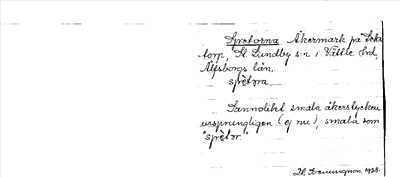 Spretorna Åkermark på
torp, St. Lundby s:n i Vättle hd,
Älfsborgs län.
sprètɔra
Sannolikt smala åkerstycken
ursprungligen (ej nu), smala som
"sprètor."
1935.